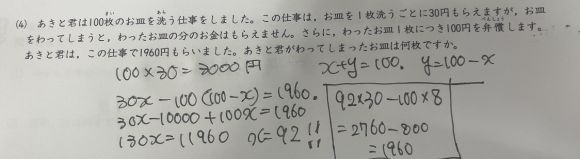 (4) あきと君は100枚のお皿を洗う仕事をしました。この仕事は、お皿を1枚洗うごとに30円もらえますが、お皿
をわってしまうと、わったお皿の分のお金はもらえません。さらに、わったお皿1枚につき100円を弁償します。
あきと君は、この仕事で1960円もらいました。あきと君がわってしまったお皿は何枚ですか。
100×30=3000円
x+y=100. y=100-x
30x-100(100-x)=1960.
30x-10000+100x=1960
130x=11960 x=92
92×30-100×8
=2760-800
=1960